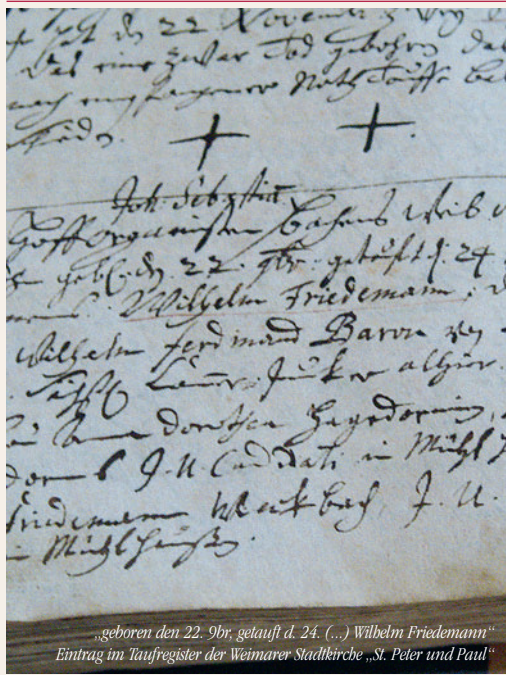 den 22 Novembr.
das eine zwar Tod gebohren
nach empfangener Noth Tauffe
Joh: Sebastian
Hofforganisten Bachens Weib
gebl. d. 22. 9br. getaufft d. 24
Wilhelm Friedemann
Wilhelm Ferdinand Baron von
Cammer Juncker alhier.
Anna dorothea Hagedornin,
dorns J. U. Candidati in Mühl
Friedemann Meckbach, J. U.
in Mühlhausen.
„geboren den 22. 9br, getauft d. 24. (...) Wilhelm Friedemann“
Eintrag im Taufregister der Weimarer Stadtkirche „St. Peter und Paul“